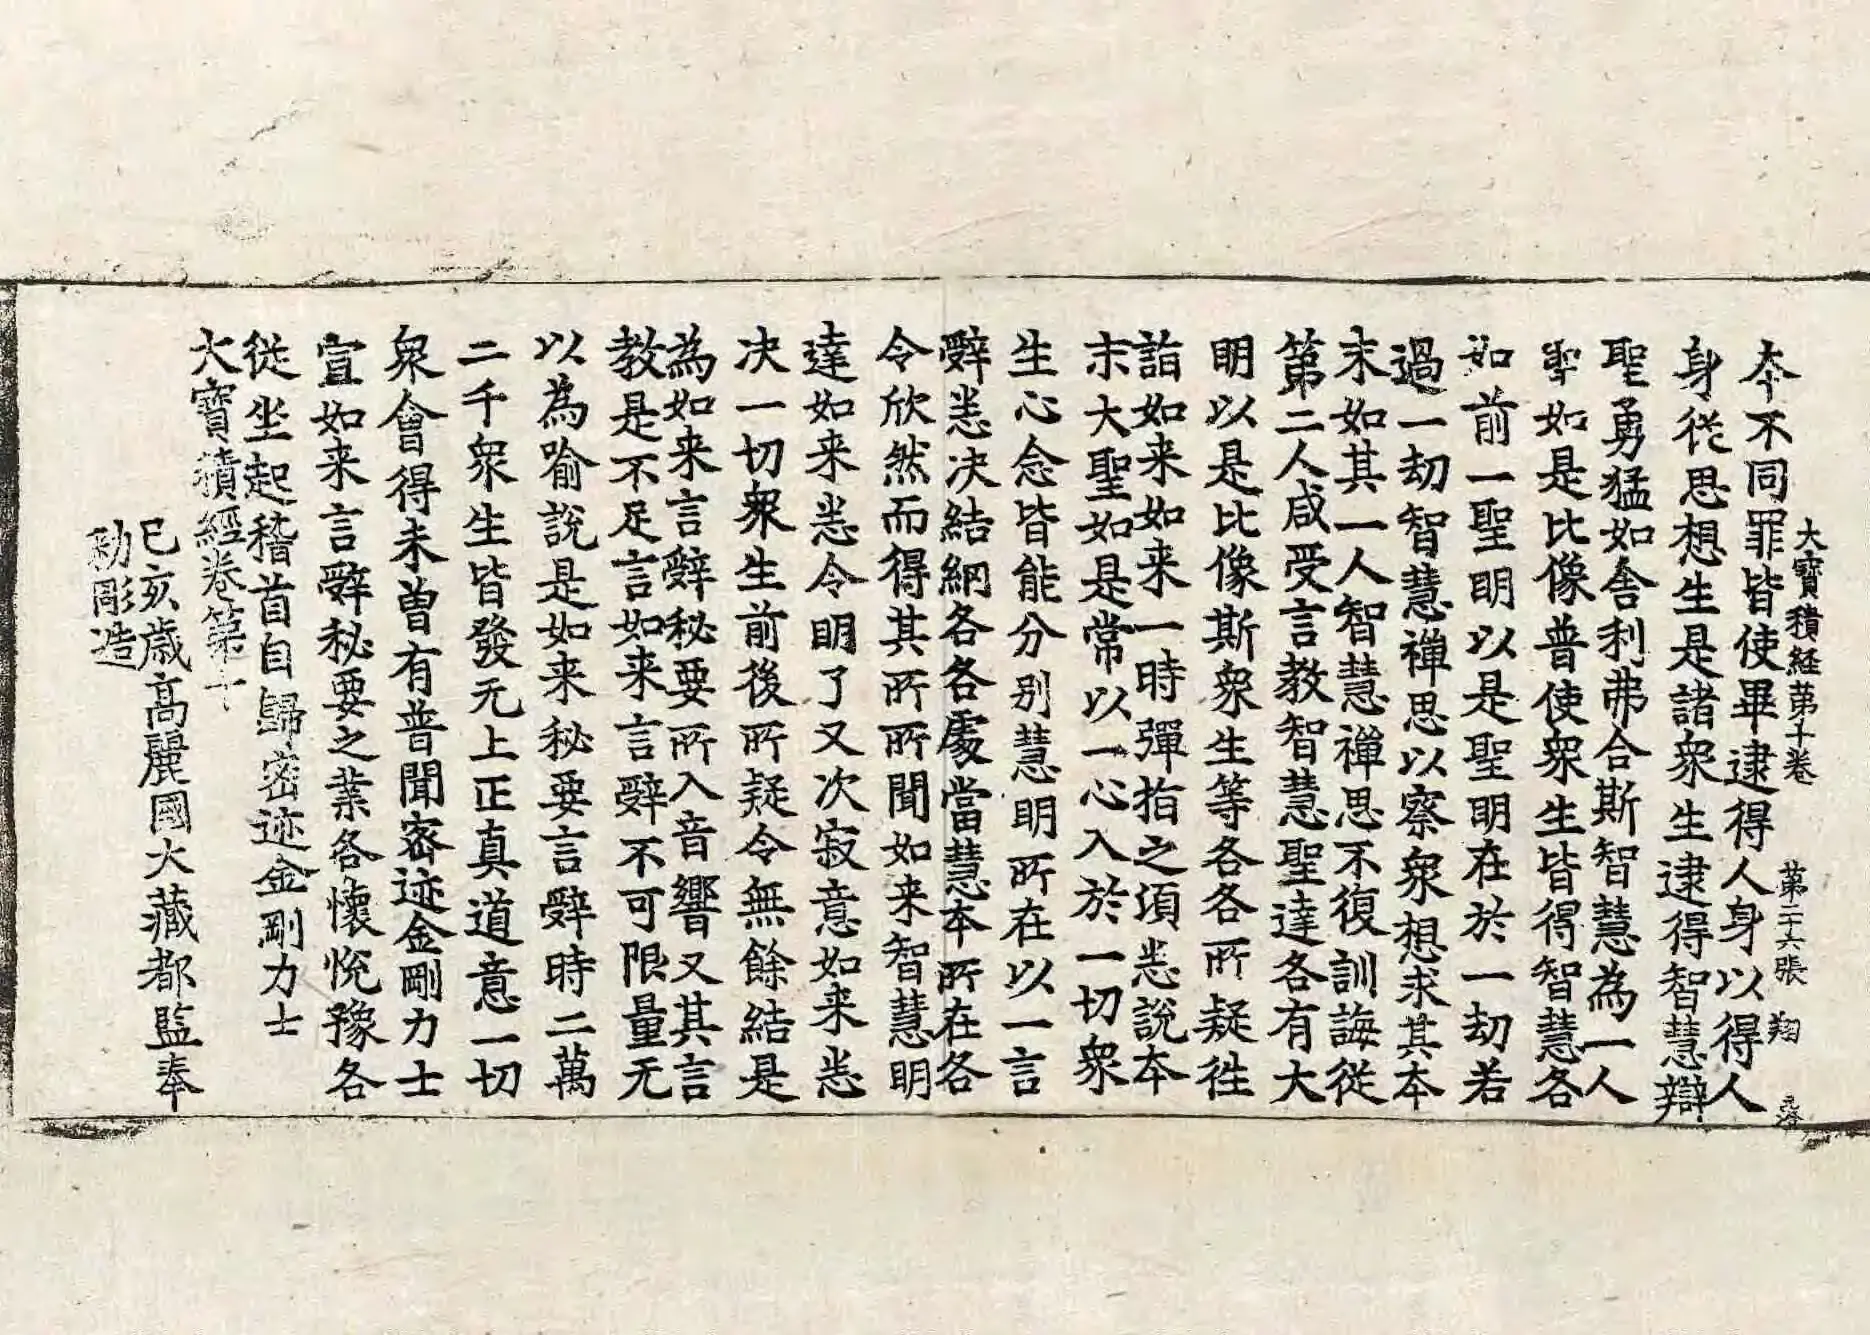 大寶積経第十卷 第二十六張 翔
夲不同罪皆使畢逮得人身以得人
身從思想生是諸衆生逮得智慧辯
聖勇猛如舍利弗合斯智慧為一人
聖如是比像普使衆生皆得智慧各
如前一聖明以是聖明在於一劫若
過一劫智慧禪思以察衆想求其夲
末如其一人智慧禪思不復訓誨從
第二人咸受言教智慧聖達各有大
明以是比像斯衆生等各各所疑徃
詣如来如来一時彈指之湏恙說夲
末大聖如是常以一心入於一切衆
生心念皆能分別慧明所在以一言
辤恙决結網各各處當慧本所在各
令欣然而得其所所聞如来智慧明
達如来恙令明了又次寂意如来恙
决一切衆生前後所疑令無餘結是
為如来言辤秘要所入音響又其言
教是不足言如来言辤不可限量无
以為喻說是如来秘要言辤時二萬
二千衆生皆發无上正真道意一切
衆會得未曽有普聞密迹金剛力士
宣如来言辤秘要之業各懷悅豫各
從坐起稽首自歸密迹金剛力士
大寶積經卷第十
己亥歲高麗國大藏都監奉
勅彫造